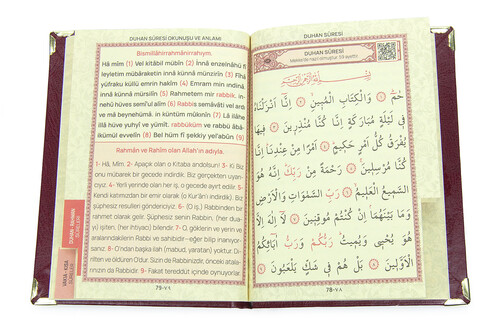 DUHÂN SÛRESİ OKUNUŞU VE ANLAMI
Bismillâhirrahmânirrahıym.
Hâ mîm (1) Vel kitâbil mübîn (2) İnnâ enzelnâhü fî
leyletim mübâraketin innâ künnâ münzirîn (3) Fîhâ
yüfraku küllü emrin hakîm (4) Emram min ındinâ.
innâ künnâ mürsilîn (5) Rahmetem mir rabbik.
innehû hüves semî'ul alîm (6) Rabbis semâvâti vel ard
ve mâ beynehümâ. in küntüm mûkinîn (7) Lâ ilâhe
illâ hüve yuhyî ve yümît. rabbüküm ve rabbü âbâ-
ikümül evvelîn (8) Bel hüm fî şekkiy yel'abûn (9)
Rahman ve Rahîm olan Allah'ın adıyla.
1- Hâ, Mîm. 2- Apaçık olan o Kitaba andolsun! 3- Ki Biz
onu mübarek bir gecede indirdik. Biz gerçekten uyarı-
cıyız. 4- Yerli yerinde olan her iş, o gecede ayırt edilir. 5-
Kendi katımızdan bir emir olarak (o Kur'ânı indirdik). Biz
şüphesiz resuller göndericiyiz. 6- (O iş,) Rabbinden bir
rahmet olarak gelir. Şüphesiz senin Rabbin, (her dua-
yı) işiten, (her ihtiyacı) bilendir. 7- O, göklerin ve yerin ve
aralarındakilerin Rabbi ve sahibidir-eğer bilip inanıyor-
sanız. 8- O'ndan başka ilah (mabud, yaratan) yoktur. Di-
rilten ve öldüren Odur. Sizin de Rabbinizdir, önceki atala-
rınızın da Rabbidir. 9- Fakat tereddüt içinde oynuyorlar.
79-٧٩
DUHÂN SÛRESİ
DUHÂN SÛRESİ
Mekke'de nazil olmuştur. 59 ayettir.
بِسْمِ اللّٰهِ الرَّحْمٰنِ الرَّحِيمِ
حٰمٓ ﴿١﴾ وَالْكِتَابِ الْمُبِينِ ﴿٢﴾ اِنَّٓا اَنْزَلْنَاهُ
فِى لَيْلَةٍ مُبَارَكَةٍ اِنَّا كُنَّا مُنْذِرِينَ ﴿٣﴾ فِيهَا
يُفْرَقُ كُلُّ اَمْرٍ حَكِيمٍ ﴿٤﴾ اَمْرًا مِنْ عِنْدِنَا اِنَّا
كُنَّا مُرْسِلِينَ ﴿٥﴾ رَحْمَةً مِنْ رَبِّكَ اِنَّهُ هُوَ
السَّمِيعُ الْعَلِيمُ ﴿٦﴾ رَبِّ السَّمٰوَاتِ وَالْاَرْضِ
وَمَا بَيْنَهُمَا اِنْ كُنْتُمْ مُوقِنِينَ ﴿٧﴾ لَٓا اِلٰهَ اِلَّا
هُوَ يُحْيِى وَيُمِيتُ رَبُّكُمْ وَرَبُّ اٰبَٓائِكُمُ
الْاَوَّلِينَ ﴿٨﴾ بَلْ هُمْ فِى شَكٍّ يَلْعَبُونَ ﴿٩﴾
78-٧٨